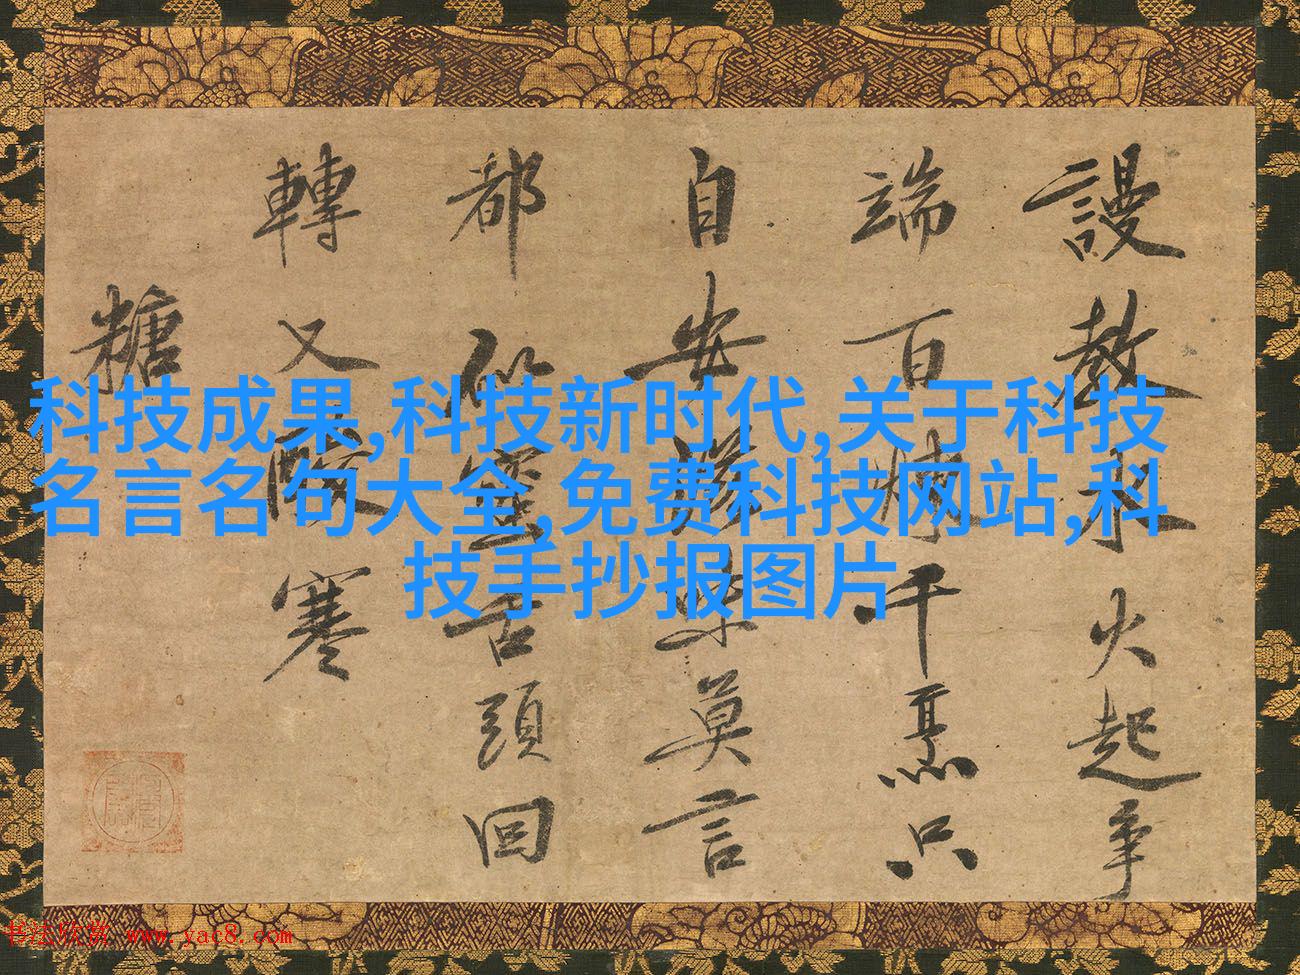 科技成果,科技新时代,关于科技
名言名句大全,免费科技网站,科
技手抄报图片
謾教水火起爭
端百煉千熏只
自安滋味莫言
都似蜜舌頭回
轉又酸寒
糖
书法欣赏 www.yac8.com